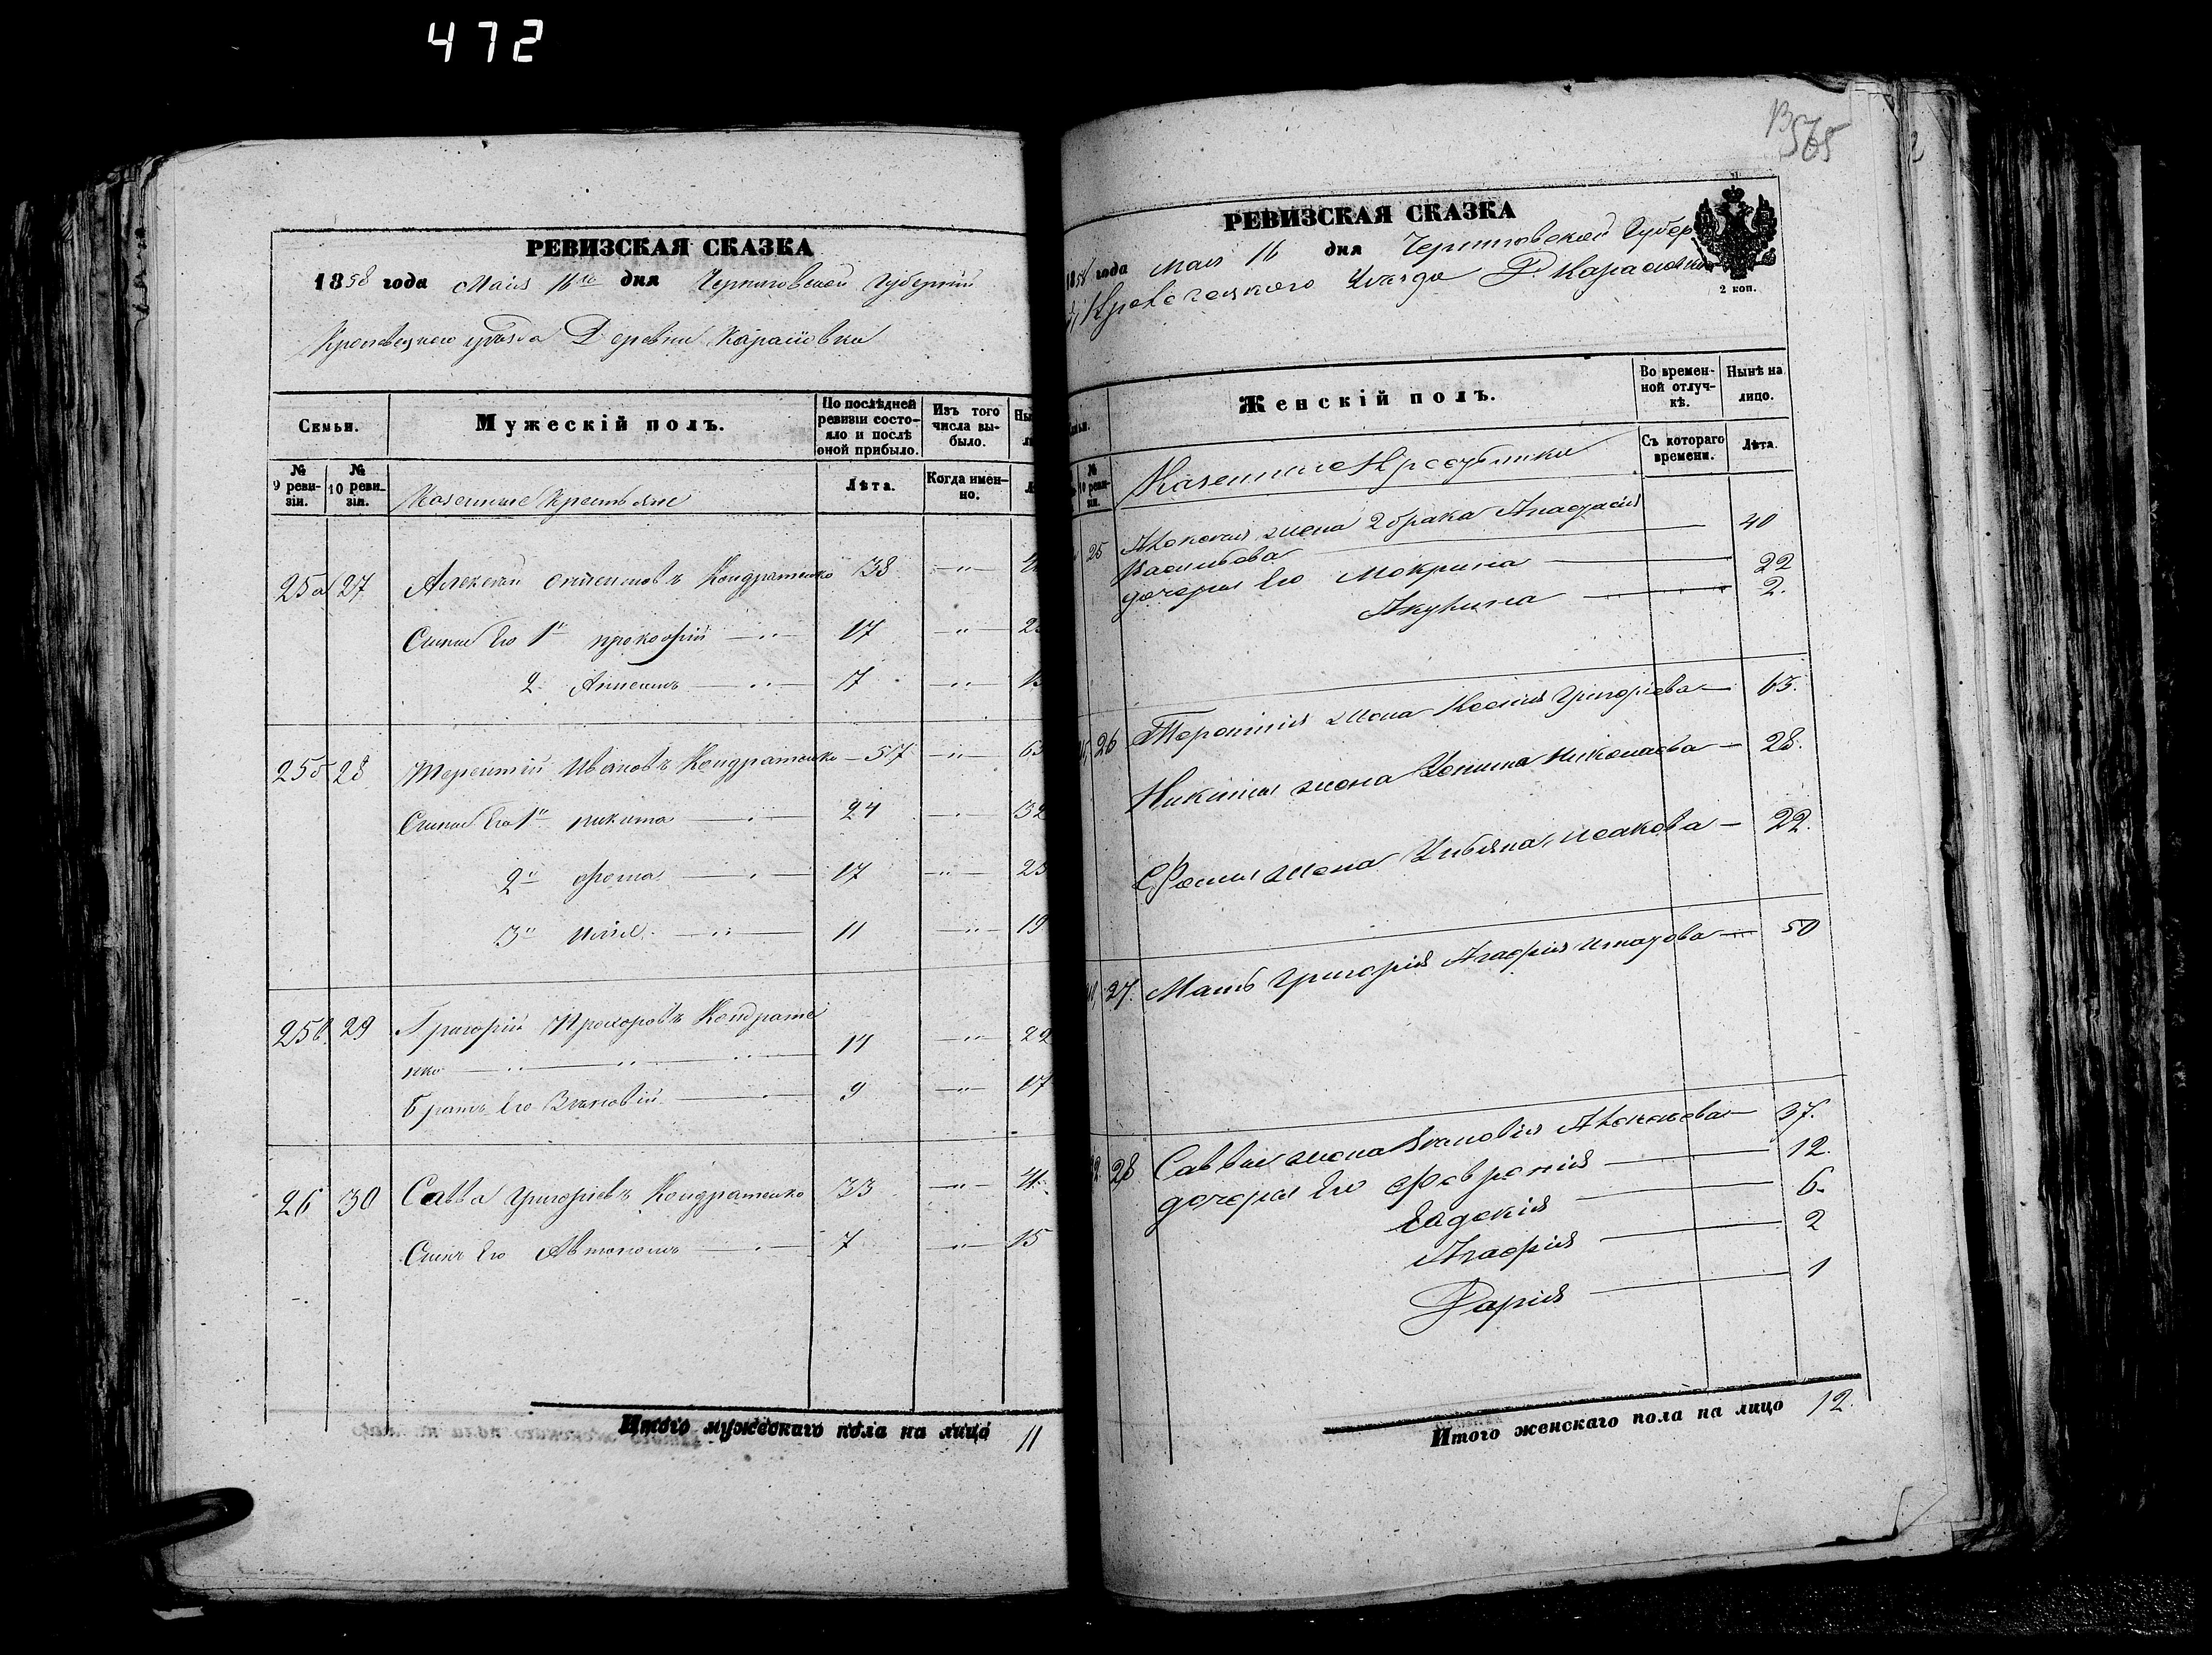 472
РЕВИЗСКАЯ СКАЗКА
1858 года Мая 16го дня Черниговской Губернии
Кролевецкого уѣзда Деревни Карасовки
Семьи.
Мужескій полъ.
По послѣдней ревизіи состояло и послѣ оной прибыло.
Изъ того числа выбыло.
№ 9 ревизіи.
№ 10 ревизіи.
Казенные Крестьяне
Лѣта.
Когда именно.
25а 27 Алексѣй Кондратенко 38 — " —
Сыны Его 1й прокофій — " — 17 — " —
2 — " — 7 — " —
25б 28 Терентій Ивановъ Кондратенко — 57 — " — 65
Сыны Его 1й никита 24 32
2й фома 17 — " — 25
3й — " — 11 — " — 19
25в. 29 Григорій Прохоровъ Кондрате
нко — " — 14 — " — 22
братъ Его 9 — " — 17
26 30 Савва Григоріевъ Кондратенко 33 — " — 41
Сынъ Его Автономъ 7 — " — 15
Итого мужескаго пола на лицо 11
565
РЕВИЗСКАЯ СКАЗКА
1858 года Мая 16 дня Черниговской Губер
Кролевецкого Уѣзда Д. Карасовки
2 коп.
Женскій полъ.
Во временной отлучкѣ.
Нынѣ на лицо.
№ 10 ревизіи.
Казенные
Съ котораго времени.
Лѣта.
25 жена 2 брака Анастасія
Васильева 40
дочери Его Мокрина 22
Акулина 2.
26 Терентія жена Ксенія Григоріева — 65.
Никиты жена Николаева — 28.
Фомы жена Ульяна Исакова — 22.
27. Мать Григорія Агафія — 50
28 Саввы жена 37.
дочери Его Февронія 12.
Евдокія 6.
Агафія 2
Дарія 1
Итого женскаго пола на лицо 12.